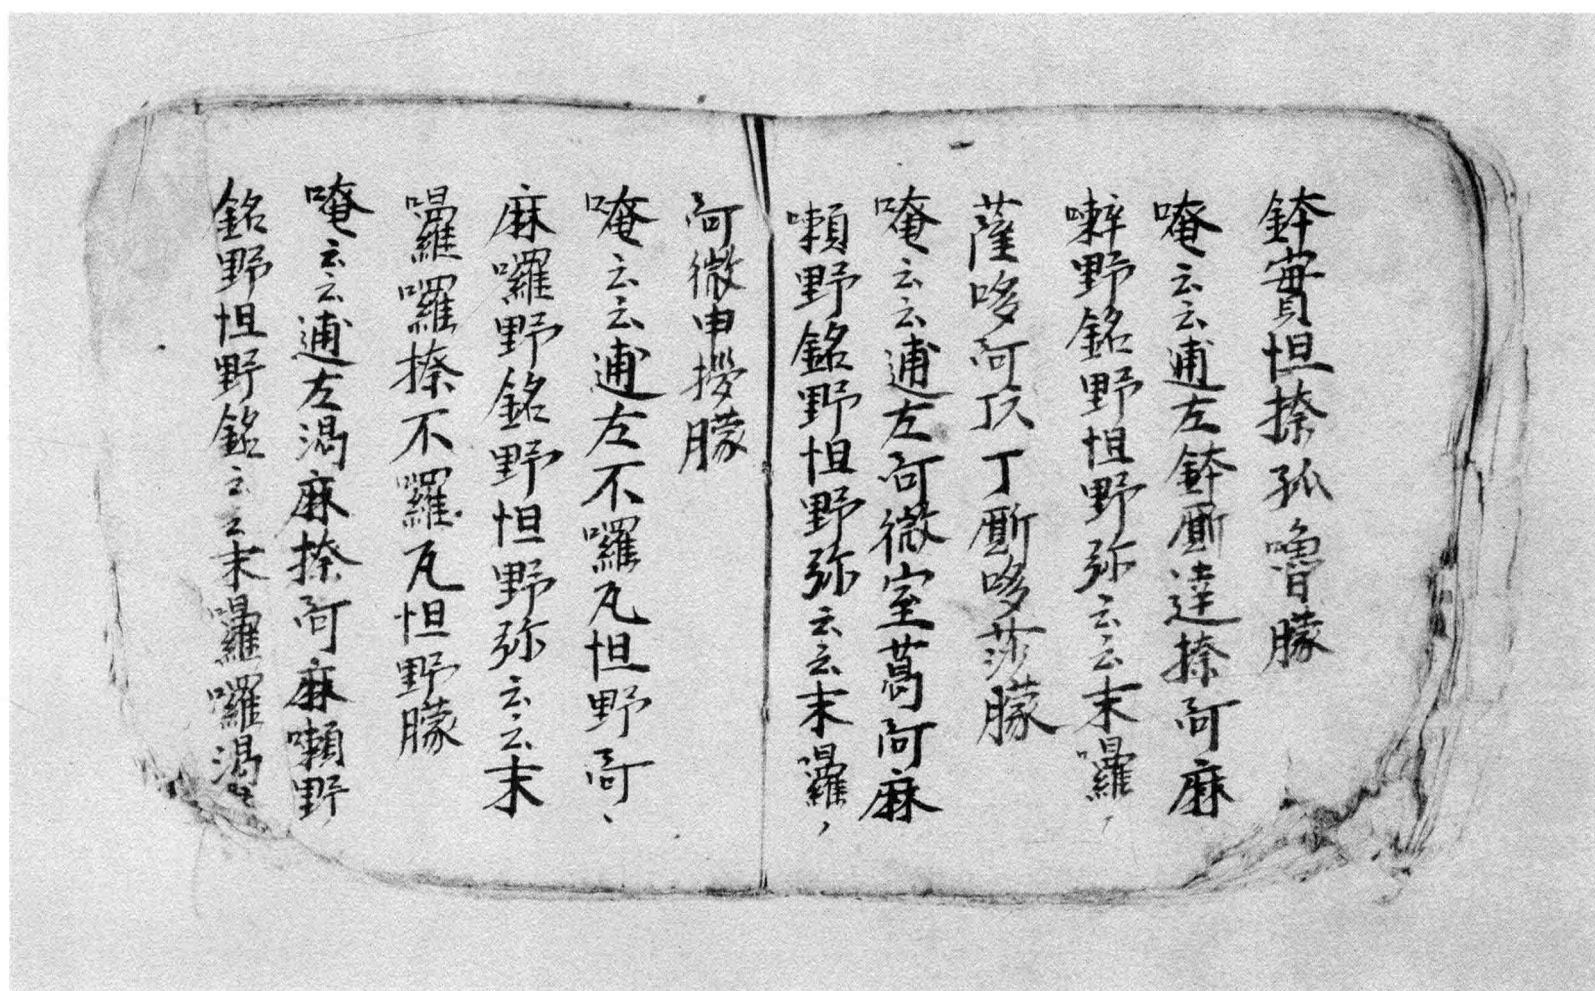 鉢實怛捺孤嚕朦
唵云云逋左鉢厮達捺阿麻
囋野銘野怛野弥云云末囉
薩哆阿丁厮哆莎朦
唵云云逋左阿微室葛阿麻
囋野銘野怛野弥云云末囉
阿微申拶朦
唵云云逋左不囉瓦怛野阿
麻囉野銘野怛野弥云云末
囉囉捺不囉瓦怛野朦
唵云云逋左渴麻捺阿麻囋野
銘野怛野銘云云末囉囉渴